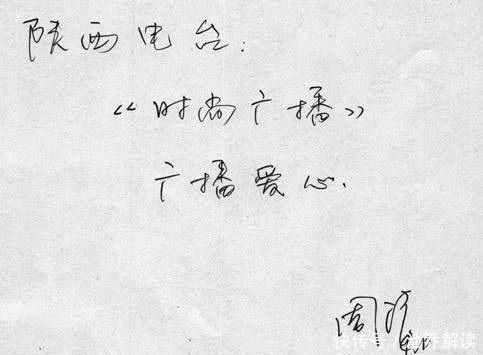 陕西电台:
“时尚广播”
广播爱心.
周
快传号
解读